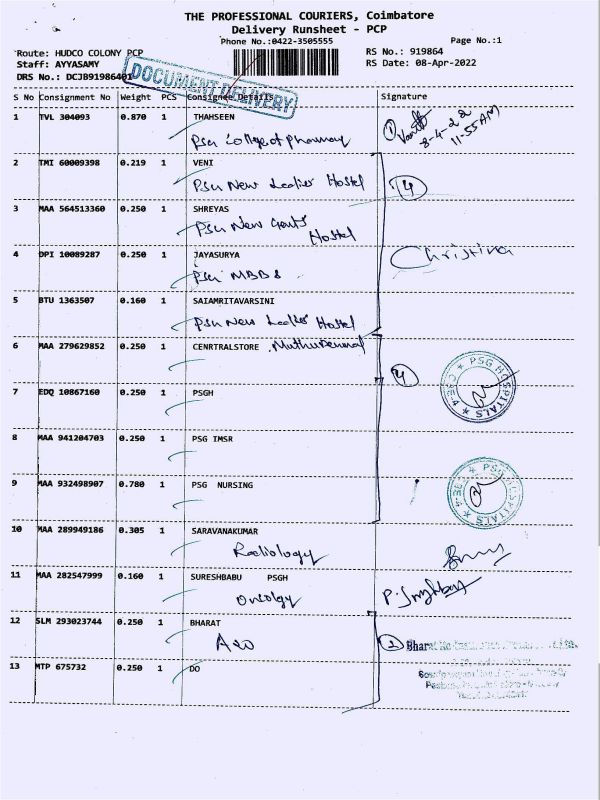 THE PROFESSIONAL COURIERS, Coimbatore
Delivery Runsheet - PCP
Phone No.:0422-3505555
Page No.:1
Route: HUDCO COLONY PCP
RS No.: 919864
Staff: AYYASAMY
RS Date: 08-Apr-2022
DRS No.: DCJB91986401
DOCUMENT DELIVERY
S No Consignment No Weight PCS Consignee Details Signature
1 TVL 304093 0.870 1 THAHSEEN
PSG College of pharmacy
8-4-22
11:55 AM
2 TMI 60009398 0.219 1 VENI
PSG New Ladies Hostel
4
3 MAA 564513360 0.250 1 SHREYAS
PSG New Gents Hostel
4 OPI 10089287 0.250 1 JAYASURYA
PSG MBBS
Christina
5 BTU 1363507 0.160 1 SAIAMRITAVARSINI
PSG New Ladies Hostel
6 MAA 279629852 0.250 1 CENRTRALSTORE
4
PSG HOSPITALS
7 EDQ 10867160 0.250 1 PSGH
8 MAA 941204703 0.250 1 PSG IMSR
9 MAA 932498907 0.780 1 PSG NURSING
PSG HOSPITALS
10 MAA 289949186 0.305 1 SARAVANAKUMAR
Radiology
11 MAA 282547999 0.160 1 SURESHBABU PSGH
Oncology
12 SLM 293023744 0.250 1 BHARAT
2 Bharat
13 MTP 675732 0.250 1 DO